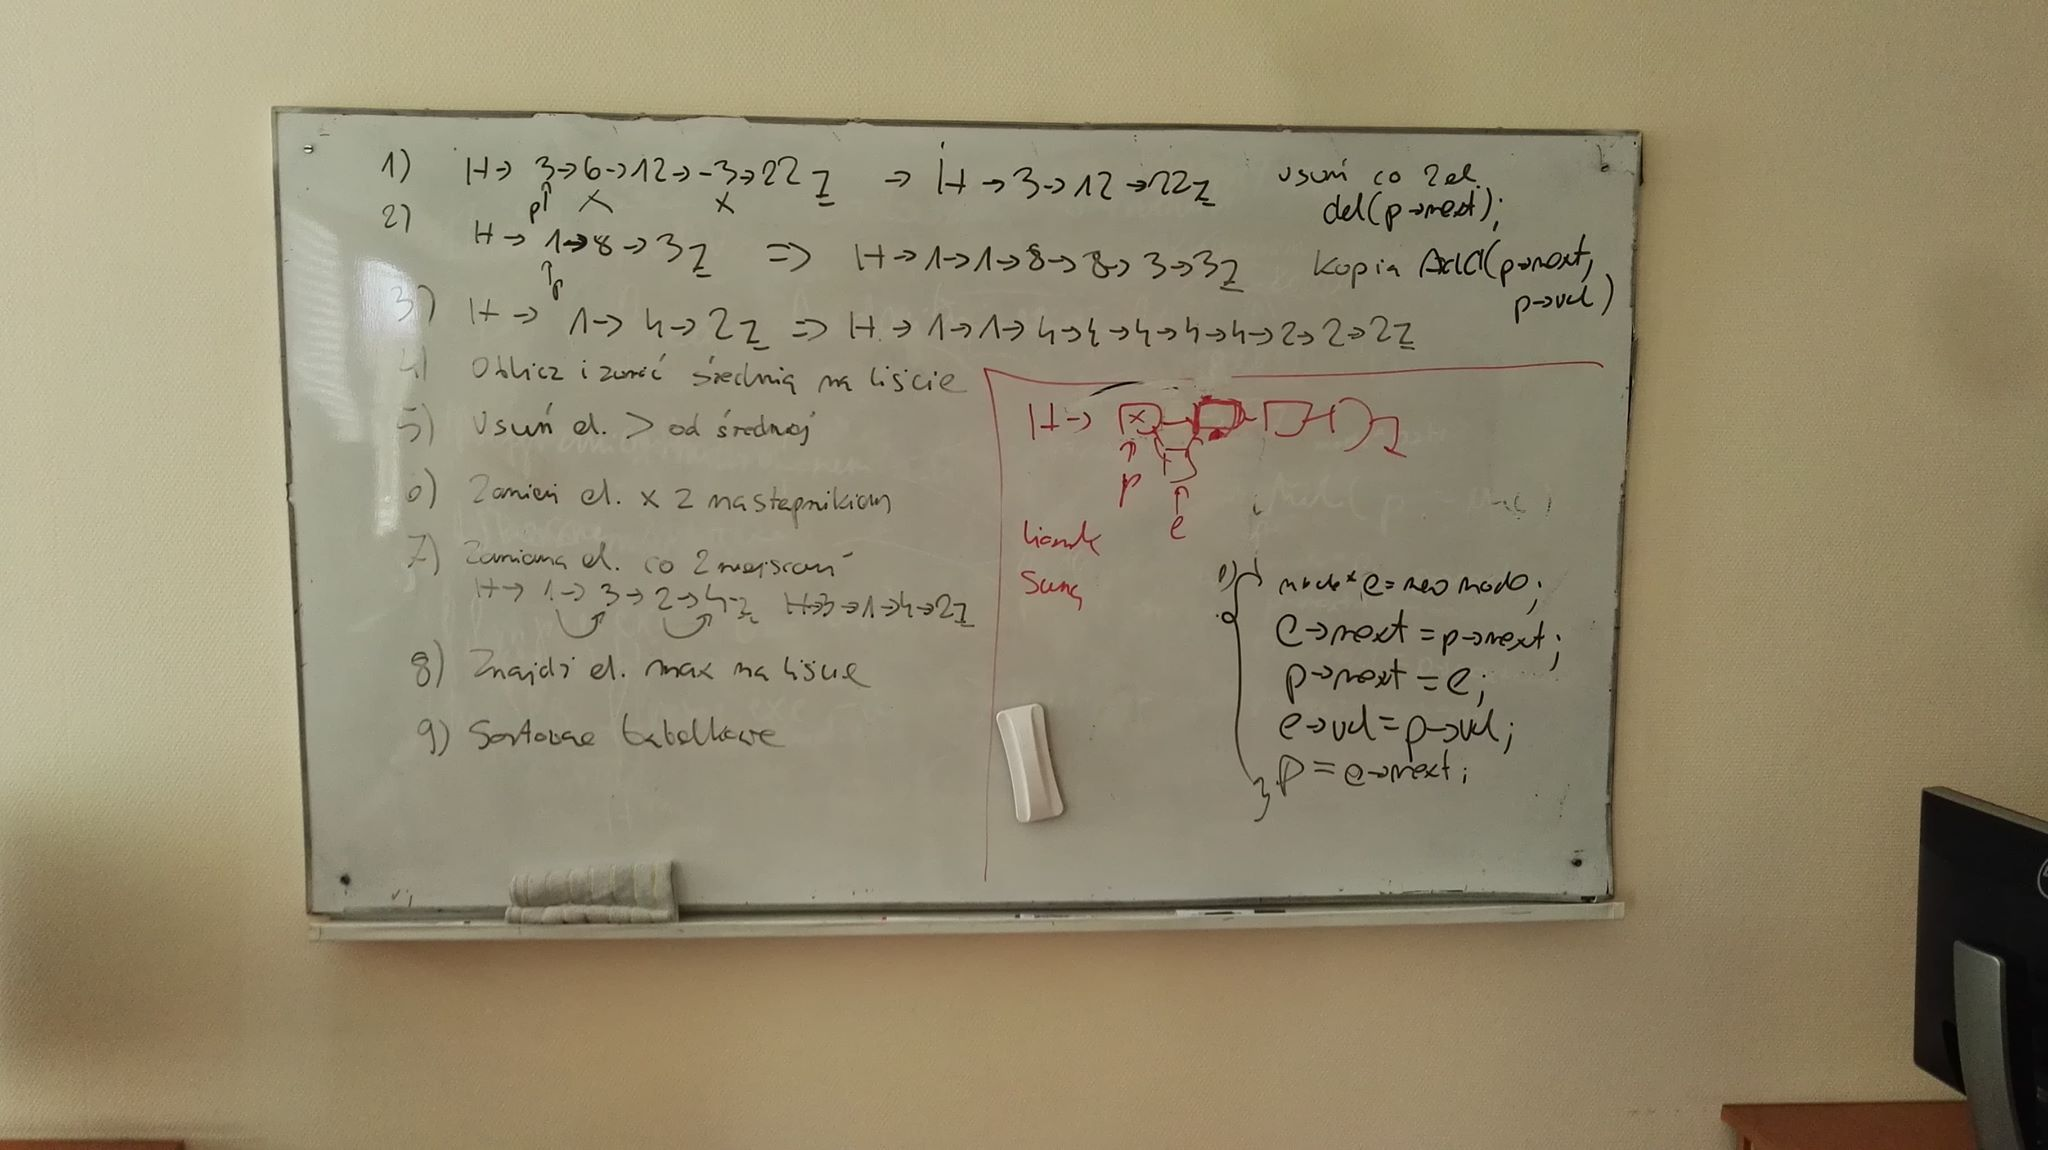 1) H → 3 → 6 → 12 → -3 → 22 Z → H → 3 → 12 → 22 Z usuń co 2 el.
p x x del(p→next);
2) H → 1 → 8 → 3 Z => H → 1 → 1 → 8 → 8 → 3 → 3 Z Kopia Add(p→next,
p p→val)
3) H → 1 → 4 → 2 Z => H → 1 → 1 → 4 → 4 → 4 → 4 → 4 → 2 → 2 → 2 Z
4) Oblicz i zwróć średnią na liście
5) Usuń el. > od średniej
6) Zamień el. x z następnikiem
7) Zamiana el. co 2 miejscami
H → 1 → 3 → 2 → 4 → Z H → 3 → 1 → 4 → 2 Z
8) Znajdź el. max na liście
9) Sortowanie bąbelkowe
H → x
p
e
Suma
node* e = new node;
e→next = p→next;
p→next = e;
e→val = p→val;
p = e→next;